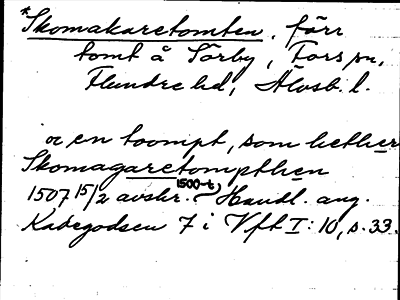 *Skomakaretomten, förr
tomt å Sörby, Fors sn,
Flundre hd, Älvsb. l.
oc en toompt, som hether
Skomagaretompthen
1507 15/2 avskr. 1500-t, Handl. ang.
Kabegodsen 7 i Vft I: 10, s. 33.